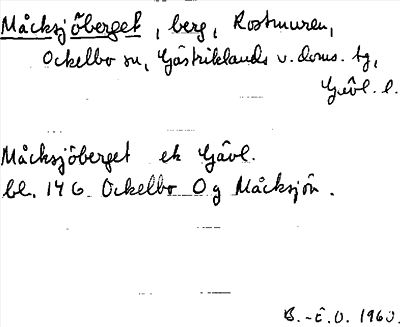 Måcksjöberget, berg, Rostmuren,
Ockelbo sn, Gästriklands v. doms. tg,
Gävl. l.
Måcksjöberget ek Gävl.
bl. 146 Ockelbo Og Måcksjön.
B.-E.O. 1960.